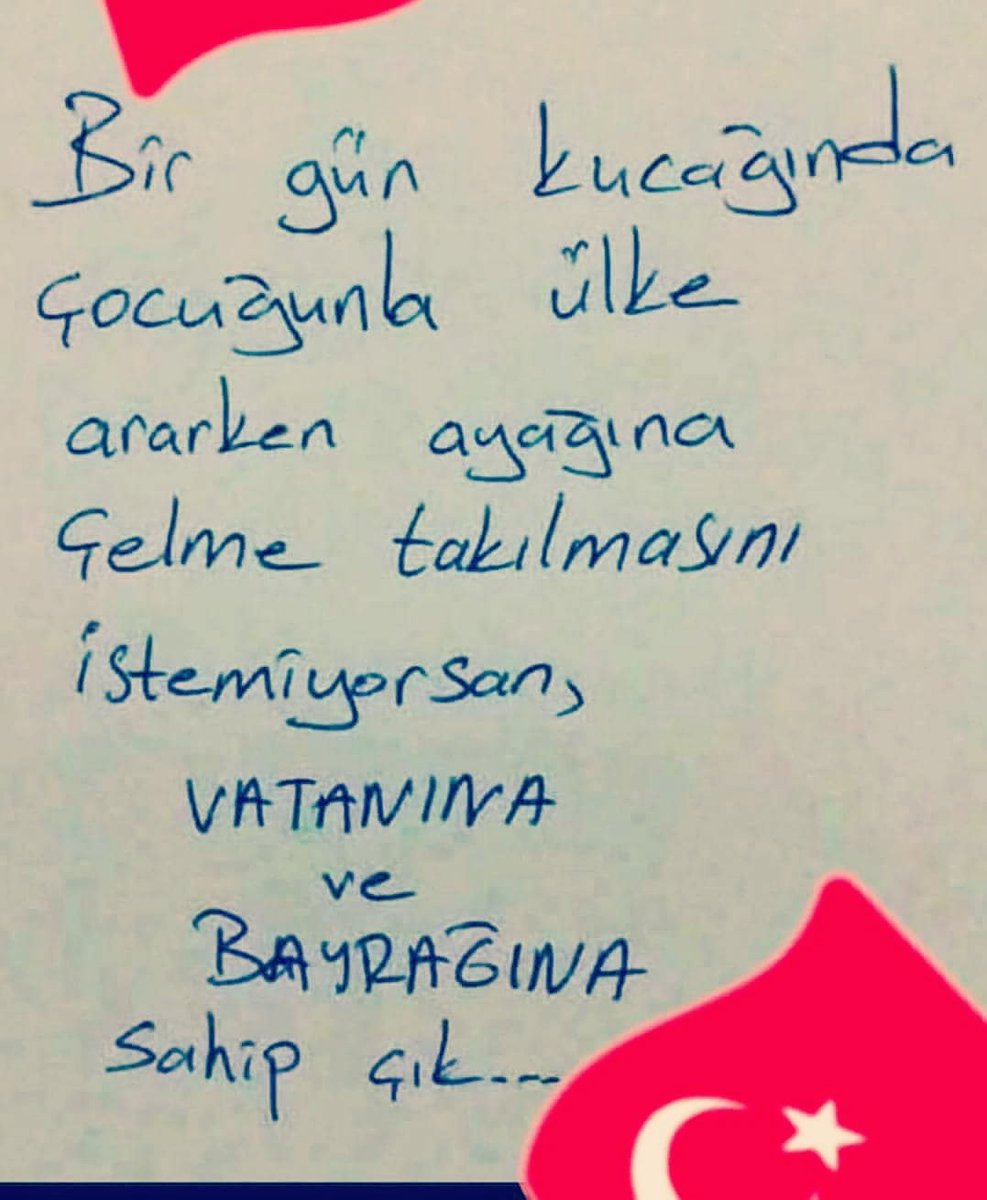 Bir gün kucağında
çocuğunla ülke
ararken ayağına
çelme takılmasını
istemiyorsan,
VATANINA
ve
BAYRAĞINA
sahip çık...